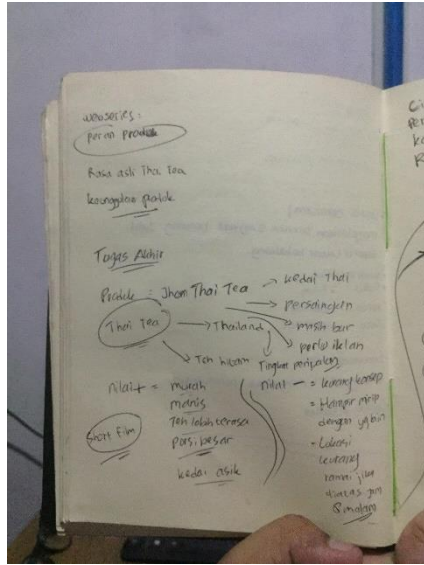 webseries :
peran produk
Rasa asli Thai Tea
keunggulan produk
Tugas Akhir
Produk = Jhom Thai Tea → kedai Thai
persaingan
Thai Tea → Thailand
masih bar
perlu iklan
Teh hitam
Tingkat penjualan
Nilai + = murah
manis
Teh lebih terasa
porsi besar
kedai asik
Short Film
Nilai - = kurang konsep
= Hampir mirip
dengan yg lain
= Lokasi
kurang
ramai jika
diatas jam
8 malam